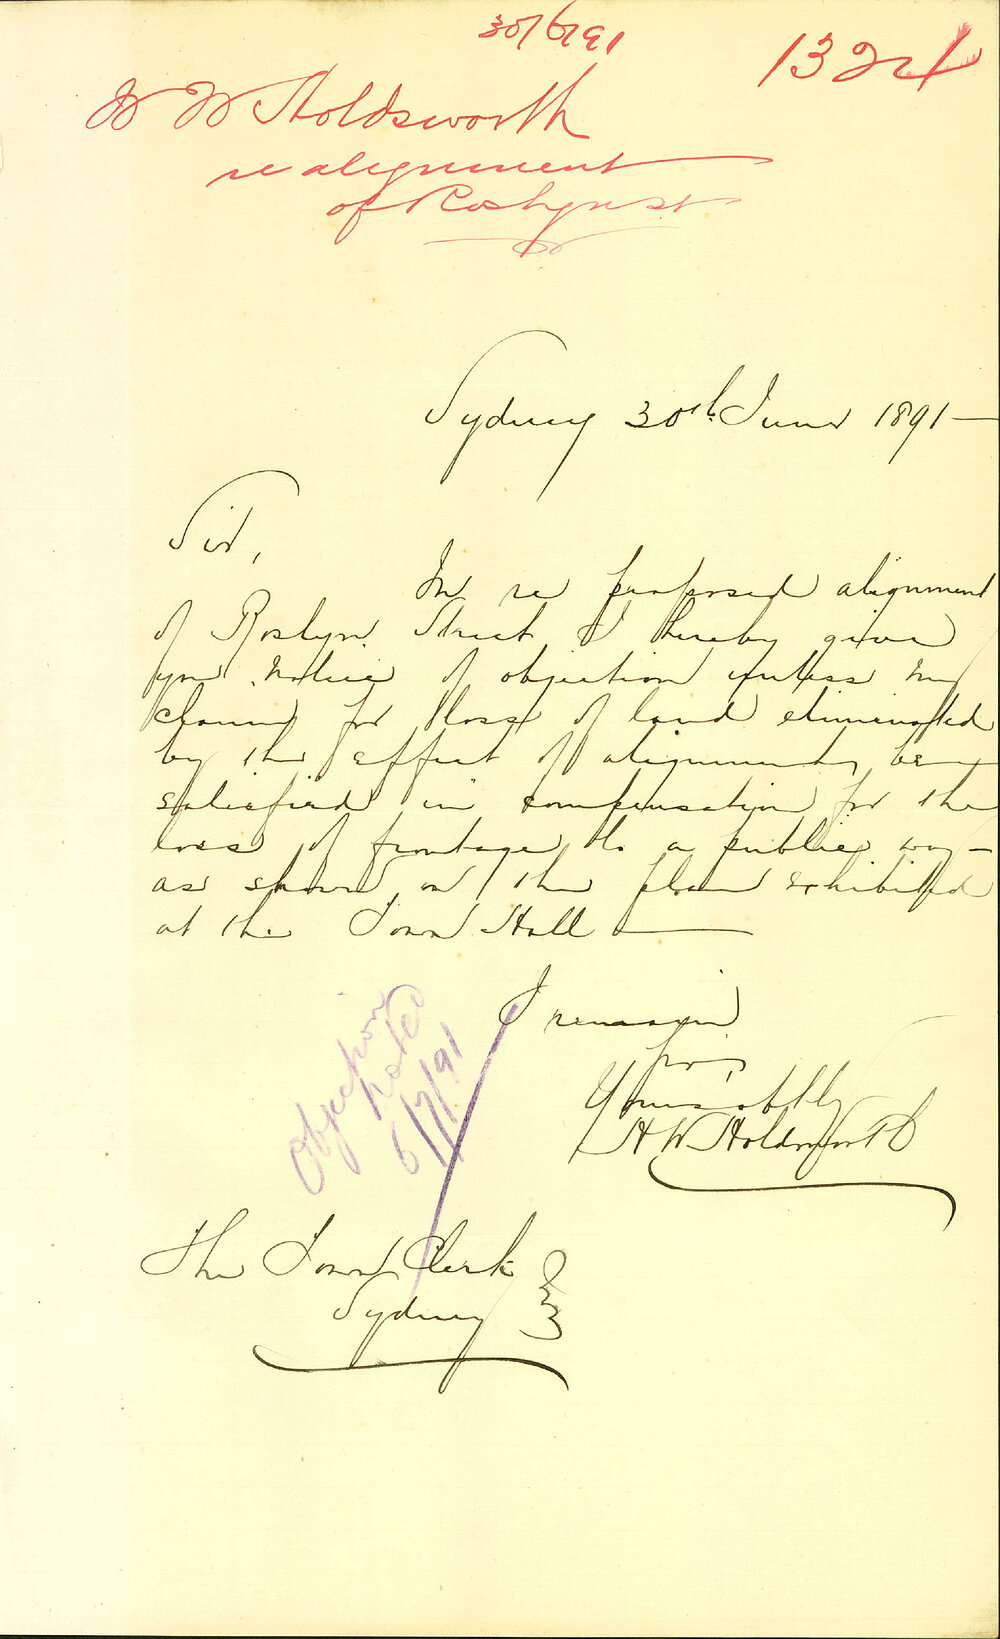 30/6/91
1324
H W Holdsworth
re alignment
of Roslyn St
Sydney 30th June 1891 —
Sir,
In re proposed alignment
of Roslyn Street I hereby give
you notice of objection unless my
claim for loss of land eliminated
by the effect of alignment, be
satisfied in compensation for the
loss of frontage to a public way —
as shown on the plan exhibited
at the Town Hall —
I remain
Sir,
Yours obtly
H W Holdsworth
Objection
noted
6/7/91
The Town Clerk
Sydney